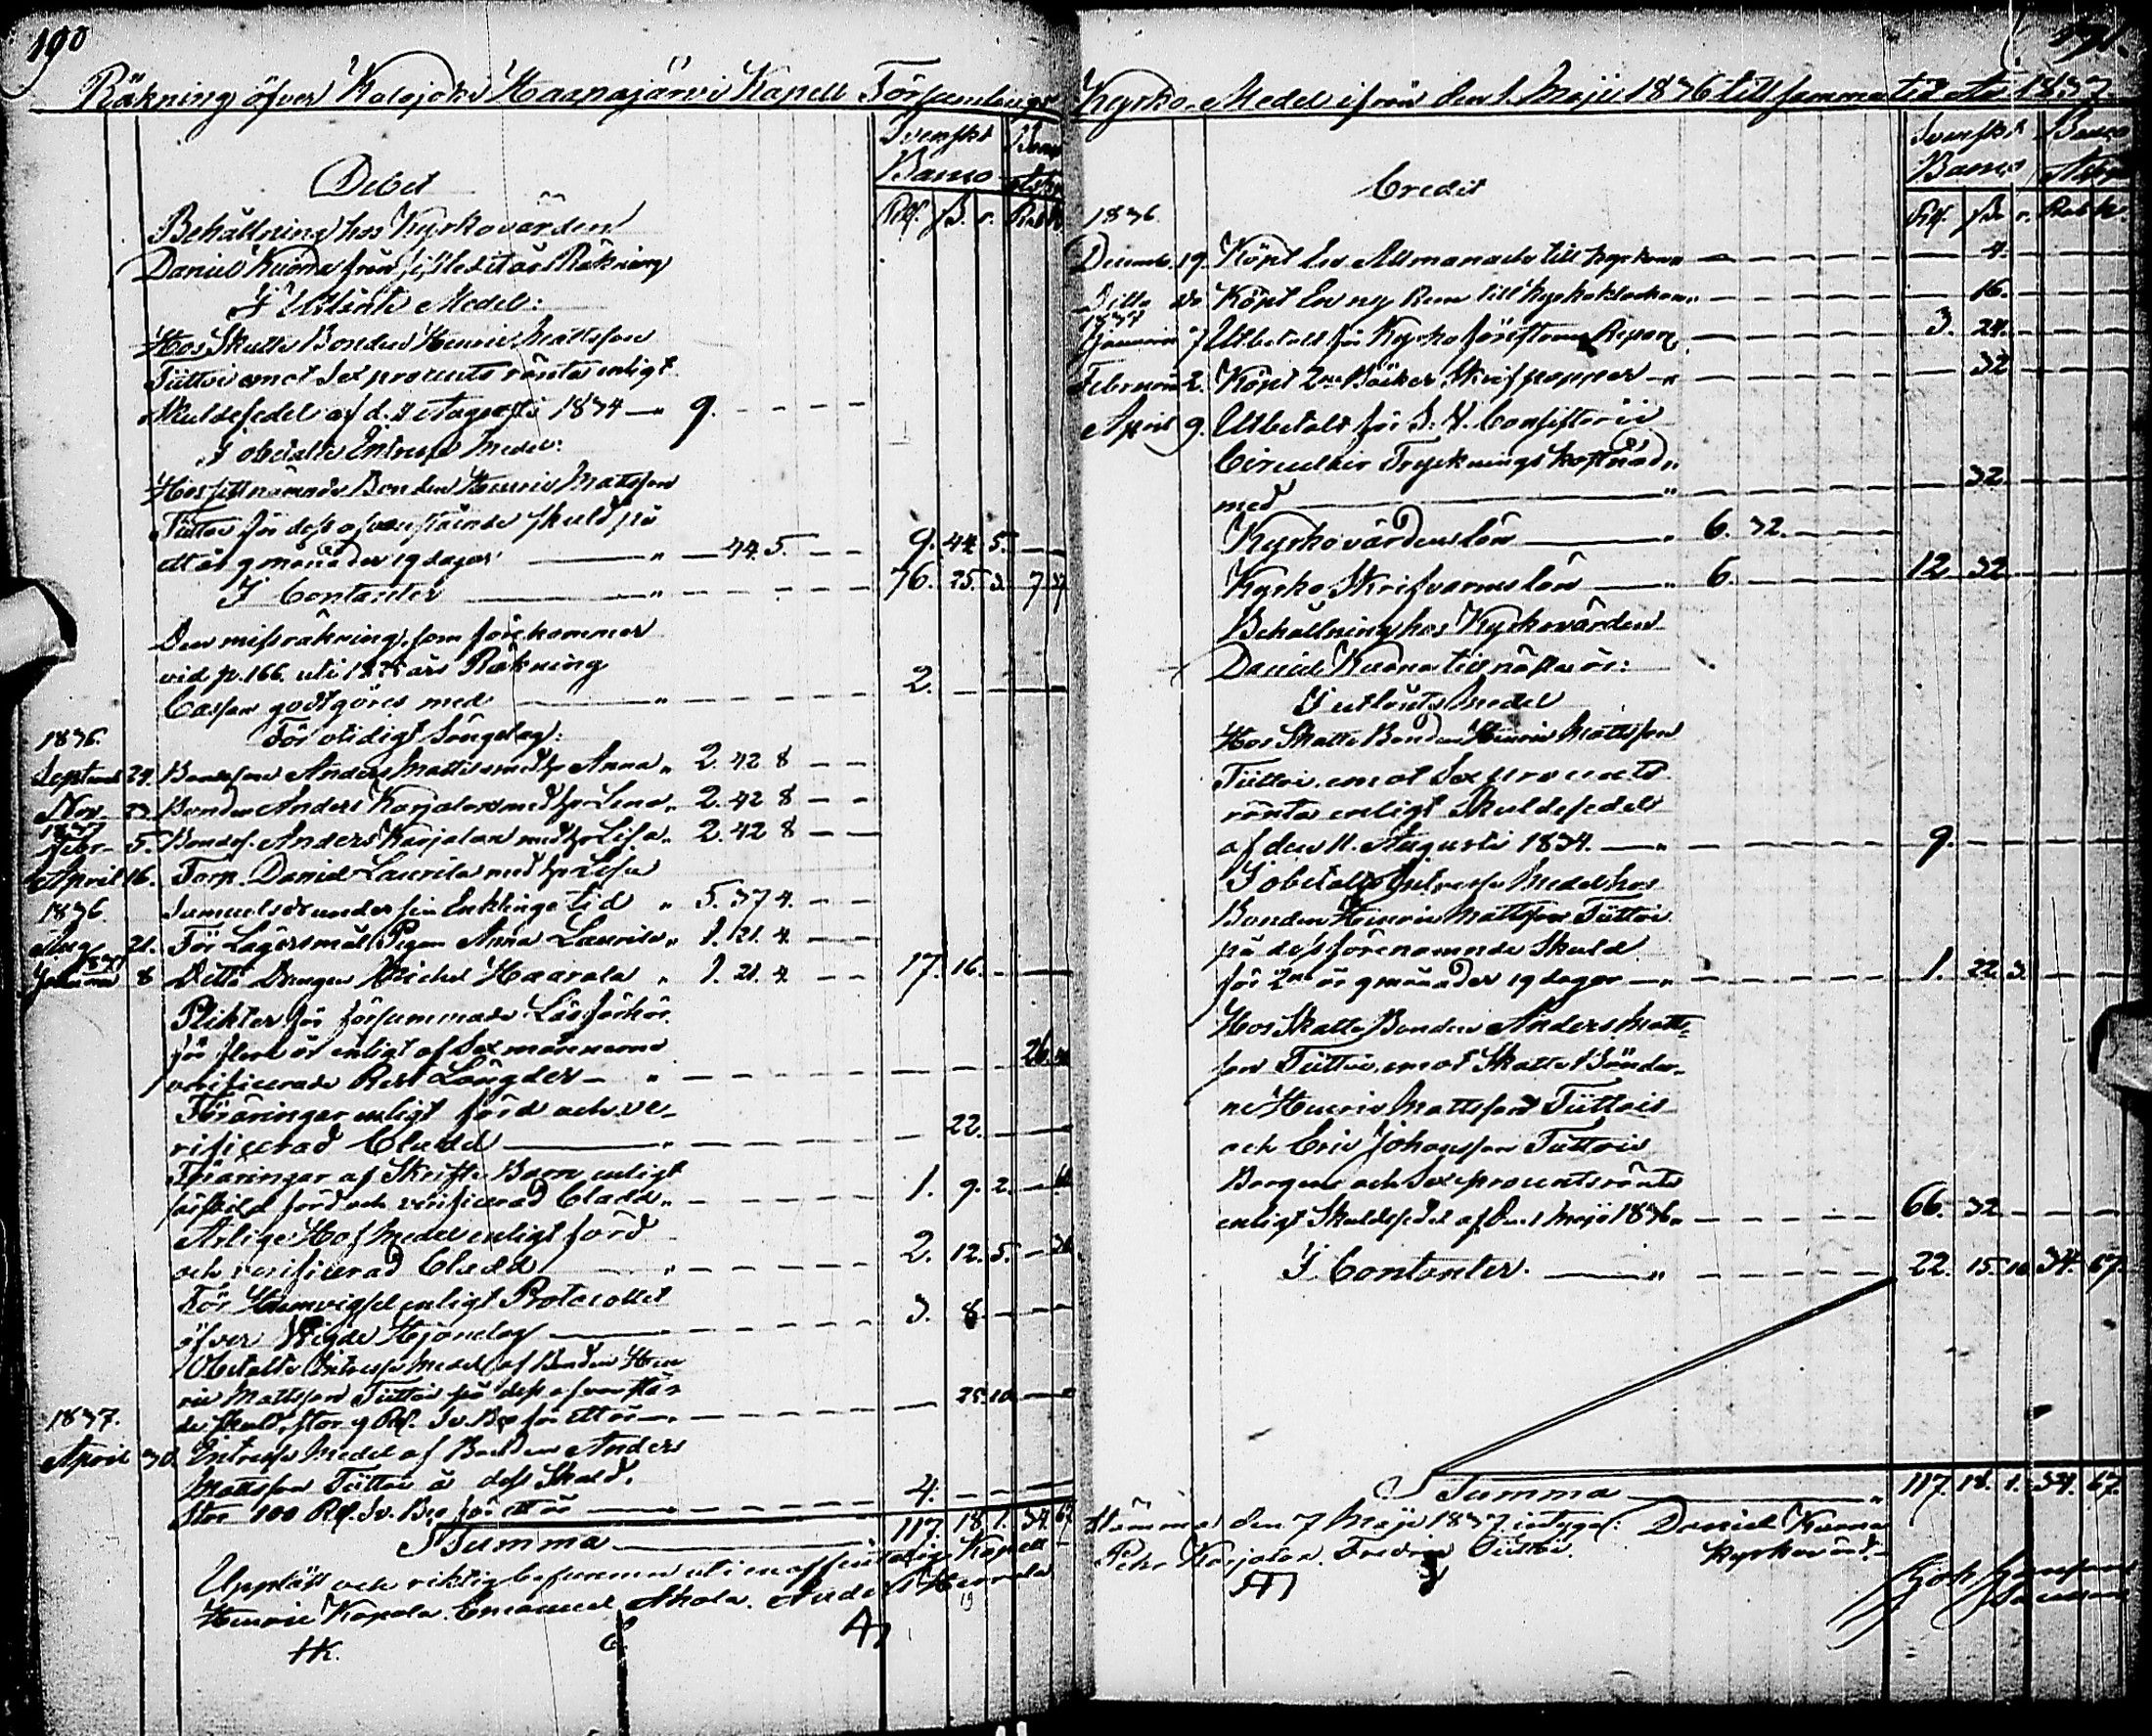 190
Räkning öfver Kalajoki Haapajärvi Kapell Församlings
Svenskt
Banco
Rd. ß. r. Rub. K.
Debet
Behållning hos Kyrkovärden
Daniel Kuona från sistledit års Räkning
I Utlänte Medel:
Hos Skatte Bonden Henric Mattsson
Tüttoi emot Sex procents ränta enligt
Skuldsedel af d. 11 Augusti 1834 — " 9.
I obetalte Intresse Medel:
Hos sistnämnde Bonden Henric Mattsson
Tüttoi för dess ofvanstående skuld på
ett år 9 månader 19 dagar — " — 44. 5. 9. 44. 5.
I Contanter — " 76. 25. 3. 7
Den missräkning, som förekommer
vid p. 166. uti års Räkning
Cassan godtgöres med — " 2.
1836. För otidigt Sängelag:
Septemb. 24. Bondeson Anders Mattis med h. Anna " 2. 42 8
Nov. Bonden Anders Karjalan med h. Lena " 2. 42 8
1837
Febr. 5. Bondes. Anders Karjalan med h. Lisa " 2. 42 8
April 16. Torp. Daniel Laurila med h. Lisa
1836. Samuelsdr under sin Enklinge tid " 5. 37 4.
Aug. 21. För Lägersmål Pigan Anna Laurila " 1. 21. 4.
1837
Januari 8 Ditto Drengen Michel Haarala " 1. 21. 4 17. 16.
Plikter för försummade Läsförhör
för flere år enligt af Sexmännerne
verificerade Rest Längder — " 26.
Föräringar enligt förd och ve-
rificerad Cladd — " 22.
Föräringar af Skrifte Barn enligt
särskild förd och verificerad Cladd " 1. 9. 2.
Årlige Haf Medel enligt förd
och verificerad Cladd — " 2. 12. 5.
För Hemvigsel enligt Protocollet
öfver Wigde Hjonelag — 3. 8.
Obetalte Intresse Medel af Bonden Hen
ric Mattsson Tüttoi på dess ofvanstån
de skuld, stor 9 Rd. Sv. Bco för ett år — 25. 10.
1837.
April 30. Intresse Medel af Bonden Anders
Mattsson Tüttoi å dess Skuld,
stor 100 Rd. Sv. Bco för ett år — 4.
Summa — 117. 18. 1. 34. 67
Uppläst och riktig befunnen uti en offentelig Kapell-
Henric Kapala. Emanuel Ahola. Anders
HK. E
191.
Kyrko-Medel ifrån den 1. Maji 1836 till samma tid år 1837
Svenskt Banco
Banco
Rd. ß. r. Rub. K.
Credit
1836.
Decemb. 19. Köpt En Allmanach till Kyrkan — 4.
Ditto do Köpt En ny Rem till Kyrkoklockan — 16.
1837
Januari 7 Utbetalt för Kyrkofönstrens Repara 3. 24.
Februari 2. Köpt 2ne Böcker Skrifpapper — " 32
April 9. Utbetalt för D. V. Consistorii
Circulair Tryckningskostnad
med — " 32
Kyrkovärdens lön — " 6. 32.
Kyrko Skrifvarens lön — " 6. 12 32
Behållning hos Kyrkovärden
Daniel Kuona till nästa år:
I utlänte Medel
Hos Skatte Bonden Henric Mattsson
Tüttoi, emot Sex procents
ränta enligt Skuldsedel
af den 11. Augusti 1834. — " 9.
I obetalte Intresse Medel hos
Bonden Henric Mattsson Tüttoi
på dess förenämnde Skuld
för 2ne år 9 månader 19 dagar — " 1. 22. 3.
Hos Skatte Bonden Anders Matts-
son Tüttoi, emot Skatte Bönder-
ne Henric Mattsson Tüttois
och Eric Johansson Tüttois
Borgen och Sex procents ränta
enligt Skuldsedel af den 1 Maji 1836 " 66. 32
I Contanter. — " 22. 15. 10 34. 67.
Summa — " 117. 18. 1. 34. 67.
Stämma den 7 Maji 1837 intygas: Daniel Kuona
Petter Karjalan. Fredric Tüttoi. Kyrkovärd.
Joh.